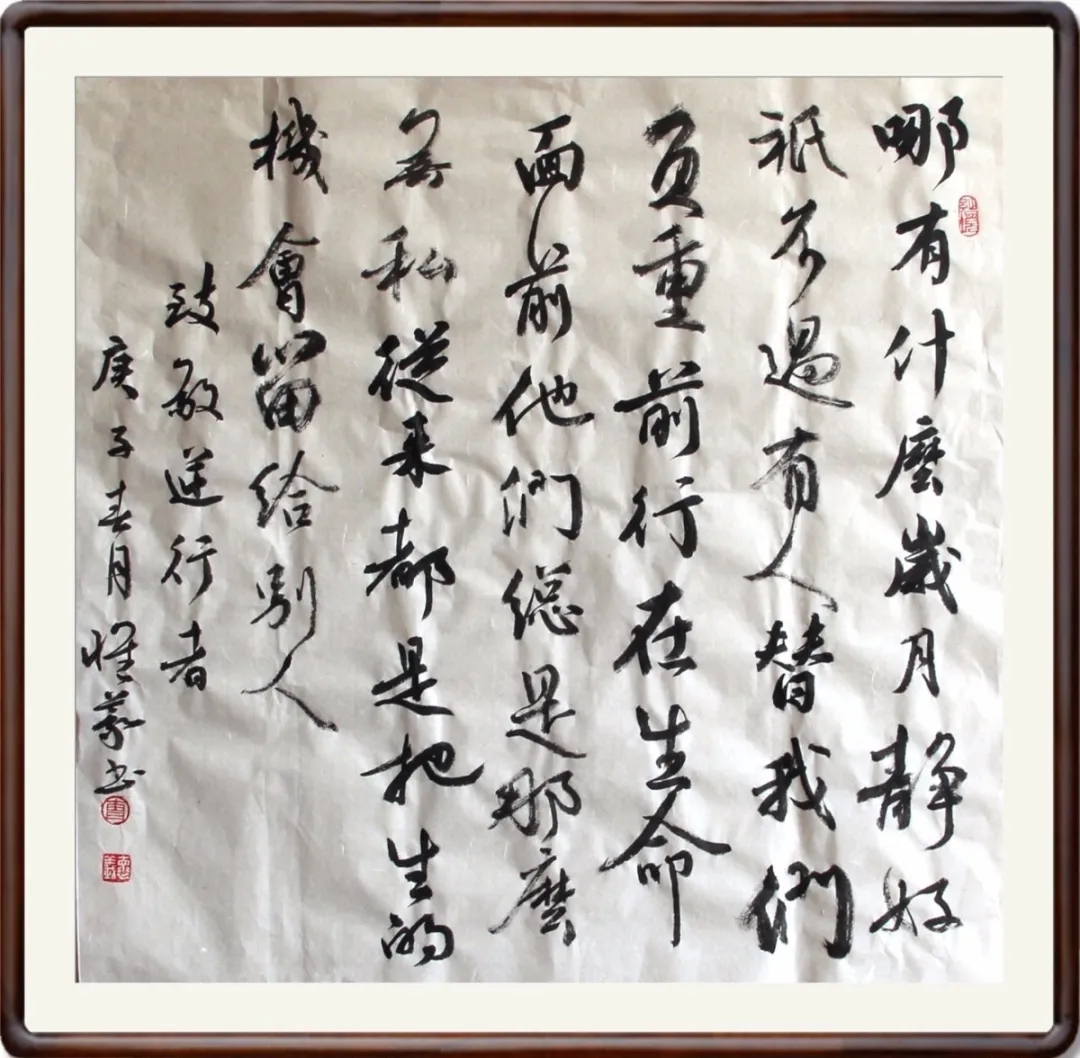 哪有什麼歲月靜好
祇不過有人替我們
負重前行在生命
面前他們總是那麼
無私從來都是把生的
機會留給別人
致敬逆行者
庚子春月惟義書